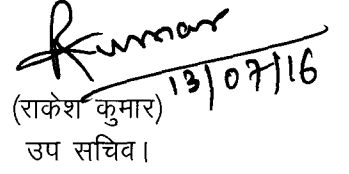 Rkumar
13/07/16
(राकेश कुमार)
उप सचिव।